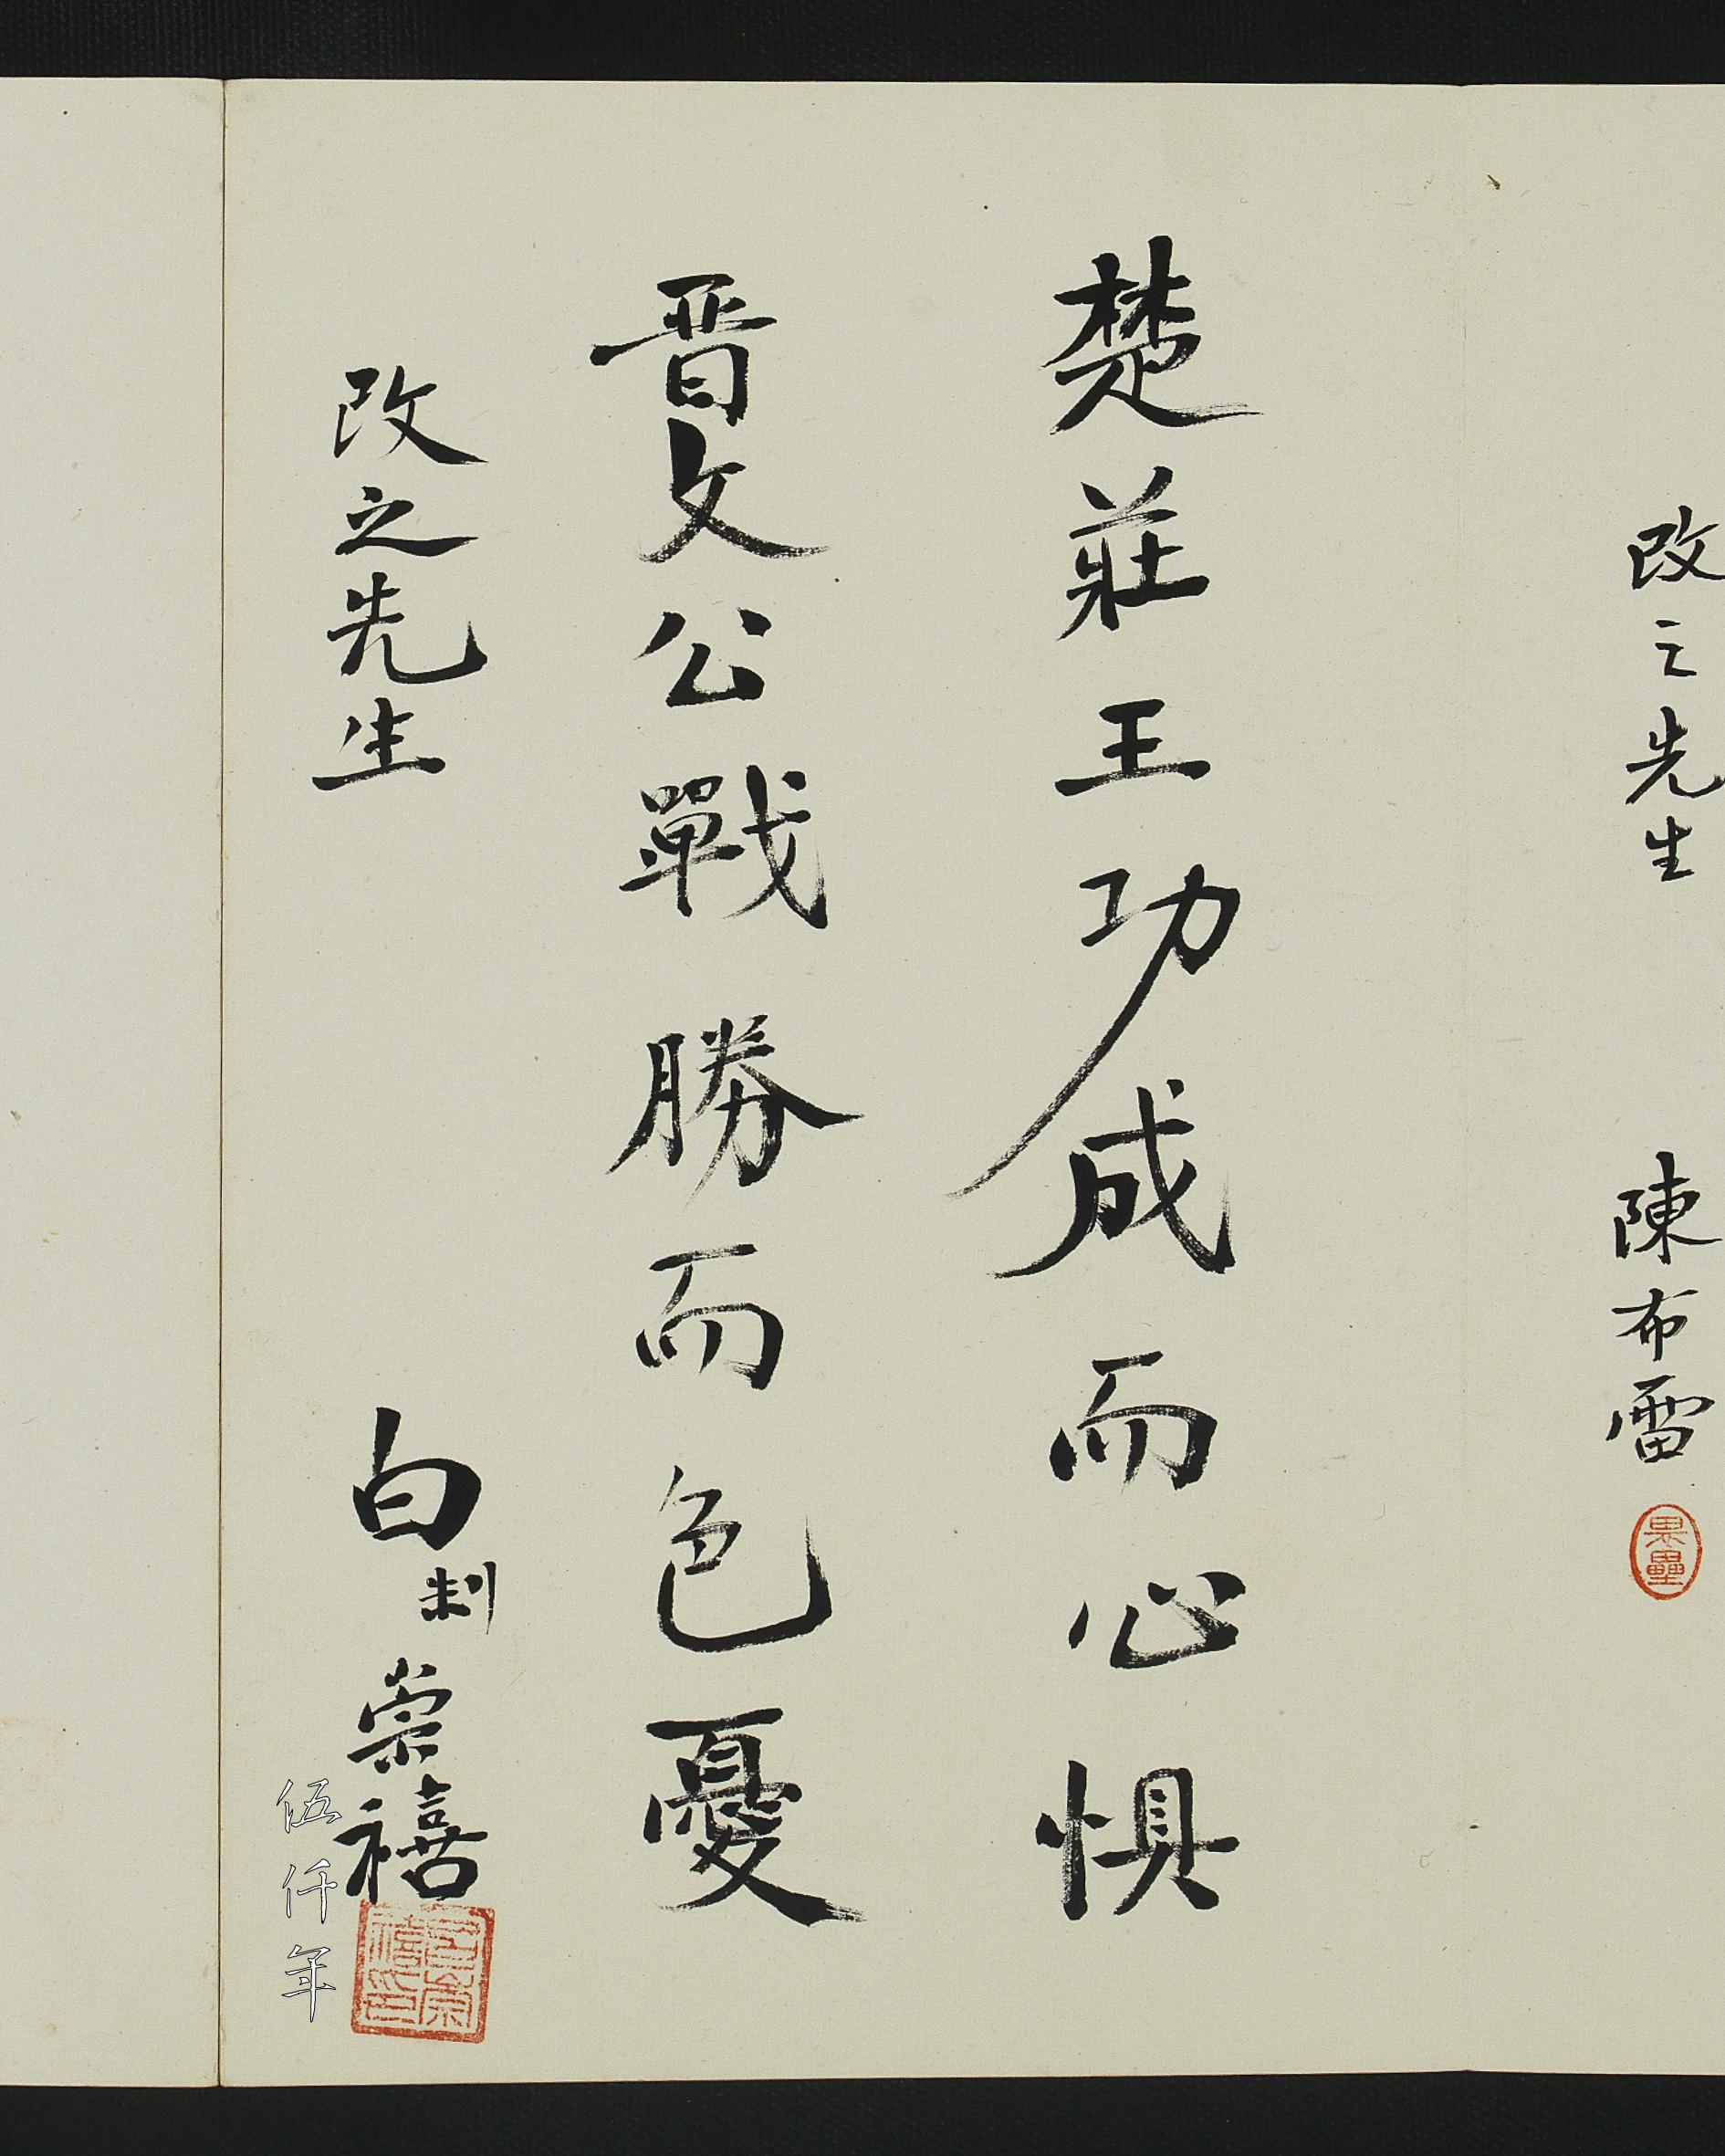 改之先生 陳布雷
畏壘
楚莊王功成而心懼
晋文公戰勝而色憂
改之先生 白崇禧
制
白崇禧印
伍仟年